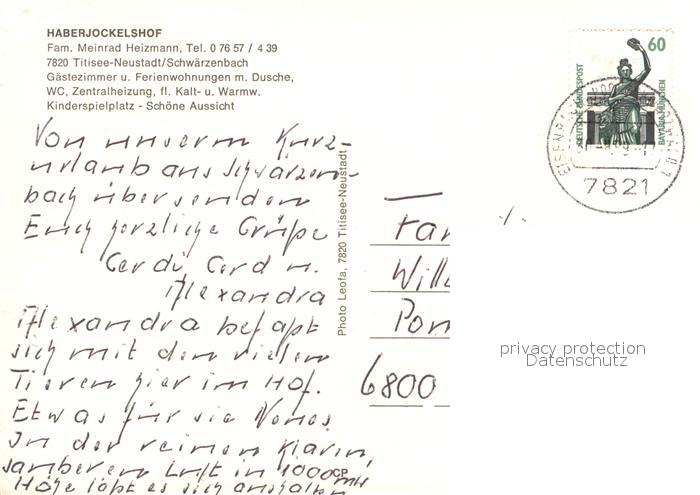 HABERJOCKELSHOF
Fam. Meinrad Heizmann, Tel. 0 76 57 / 4 39
7820 Titisee-Neustadt/Schwärzenbach
Gästezimmer u. Ferienwohnungen m. Dusche,
WC, Zentralheizung, fl. Kalt- u. Warmw.
Kinderspielplatz - Schöne Aussicht
Von unserem Kurz-
urlaub aus Schwärzen-
bach übersenden
Euch herzliche Grüße
Gerdi Gerd u.
Alexandra
Alexandra befaßt
sich mit den vielen
Tieren hier im Hof.
Etwas für sie Neues.
In der reinen klaren,
sauberen Luft in 1000 mtr
Höhe läßt es sich aushalten
CP
Photo Leofa, 7820 Titisee-Neustadt
60
DEUTSCHE BUNDESPOST
BAVARIA MÜNCHEN
7821
Fam
Will
Pom
6800
privacy protection
Datenschutz